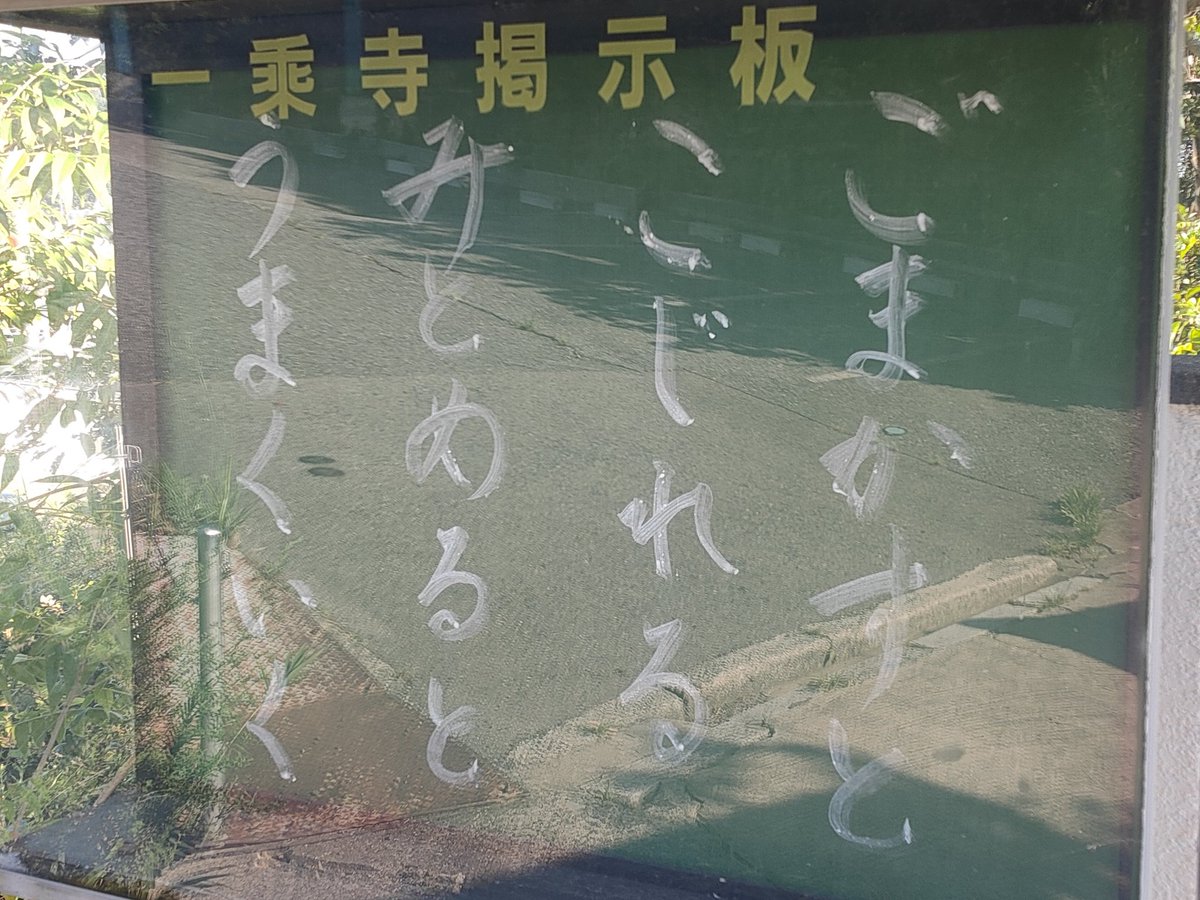 一乗寺掲示板
ごまかすと
こじれる
みとめると
うまくいく